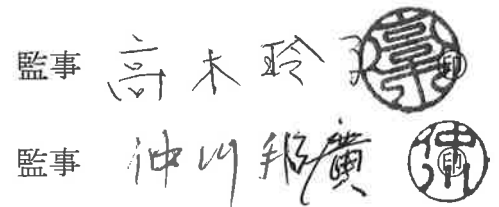 監事 高木玲子 印
監事 仲川邦廣 印